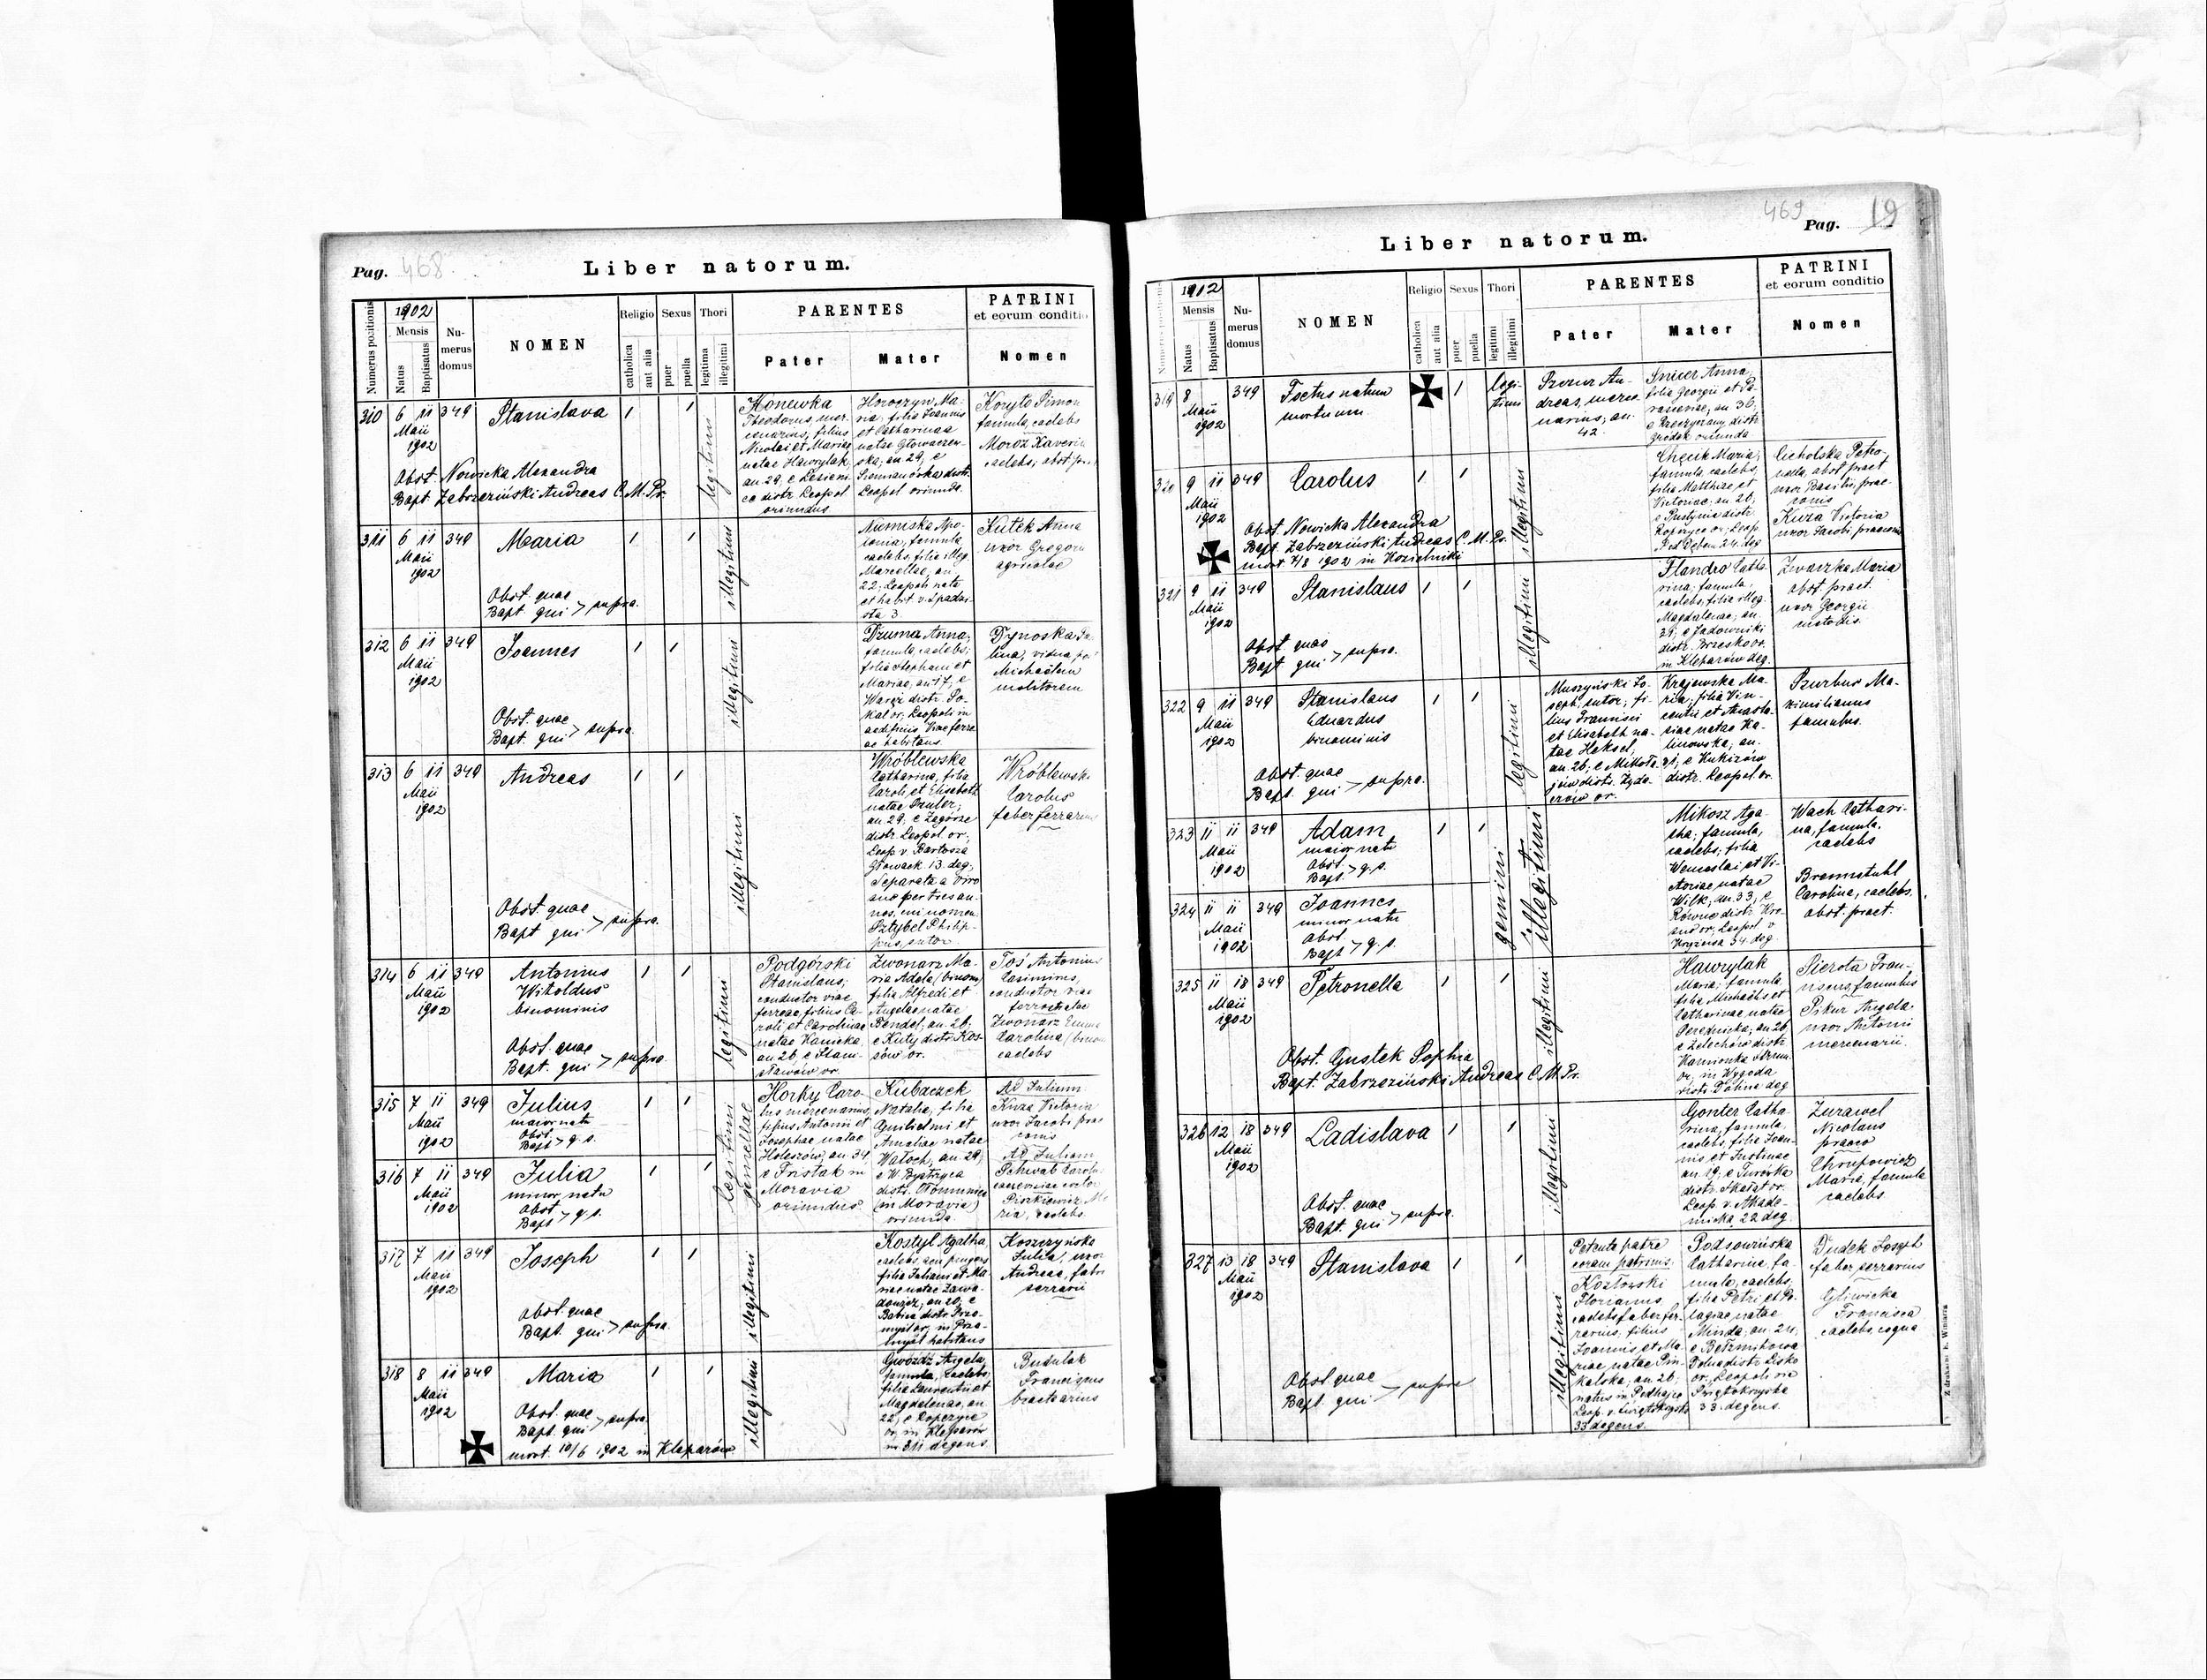 Pag. 468.
Liber natorum.
Numerus positionis
1902
Mensis
Natus
Baptisatus
Nu-
merus
domus
NOMEN
Religio
catholica
aut alia
Sexus
puer
puella
Thori
legitima
illegitimi
PARENTES
Pater
Mater
PATRINI
et eorum conditio
Nomen
310 6 11 349 Stanislava 1 1
Maii
1902
Obst. Nowicka Alexandra
Bapt. Zabrzeziński Andreas C. M. Pr.
legitimi
Konewka
Theodorus, mer-
cenarius, filius
Nicolai et Mariae
natae Hawrylak,
an. 29, e Lesieni
ce distr. Leopol
oriundus
Horoczyn, Ma-
ria, filia Joannis
et Catharinae
natae Głowaczew-
ska, an. 29, e
Siemianówka distr.
Leopol oriunda.
Koryto Simon
famulus, caelebs
Moroz Xaveria
caelebs, obst.
311 6 11 349 Maria 1 1
Maii
1902
Obst. quae
Bapt. qui > supra.
illegitimi
Niemiska Apo-
lonia, famula
caelebs, filia illeg.
Marcellae, an.
22, Leopoli nata
et habit. v. Spadzi-
sta 3.
Kutek Anna
uxor Gregorii
agricolae
312 6 11 349 Joannes 1 1
Maii
1902
Obst. quae
Bapt. qui > supra.
illegitimi
Druma Anna,
famula, caelebs,
filia Stephani et
Mariae, an. 17, e
Waręż distr. So-
kal or., Leopoli in
aedificiis Viae ferre
ae habitans.
Dynoska
lina, vidua,
Michaëlem
molitorem
313 6 11 349 Andreas 1 1
Maii
1902
Obst. quae
Bapt. qui > supra.
illegitimi
Wróblewska
Catharina, filia
Caroli et Elisabeth
natae
an. 29, e Zagórze
distr. Leopol or.,
Leop. v. Bartosza
Głowack. 13. deg.,
Separata a viro
suo per tres an-
nos, cui nomen
Sztybel Philip-
pus, sutor
Wróblewski
Carolus
faber ferrarius
314 6 11 349 Antonius 1 1
Maii
1902
Witoldus
binominis
Obst. quae
Bapt. qui > supra.
legitimi
Podgórski
Stanislaus,
conductor viae
ferreae, filius Ca-
roli et Carolinae
natae Kanicka,
an. 26, e Stani-
sławów or.
Zwonarz Ma-
ria Adela (binom.)
filia Alfredi et
Angelae natae
Bendel, an. 26,
e Kuty distr. Kos-
sów or.
Toś Antonius
Casimirus,
conductor viae
ferrostratae
Zwonarz Emma
Carolina (binom
caelebs
315 7 11 349 Julius 1 1
Maii
1902
maior natu
Obst.
Bapt. > q. s.
legitimi
gemellae
Horky Caro-
lus mercenarius,
filius Antonii et
Josephae natae
Holeszów, an. 34
e Tristak in
Moravia
oriundus
Kubaczek
Natalia, filia
Guilielmi et
Amaliae natae
Watoch, an. 29,
e W. Bystryca
distr. Ołomuniec
(in Moravia)
oriunda.
Ad Julium
Kuza Victoria
uxor Jacobi prae
conis
Ad Juliam
Schwab Carolus
Piórkiewicz Ma
ria, caelebs.
316 7 11 349 Julia 1 1
Maii
1902
minor natu
Obst.
Bapt. > q. s.
317 7 11 349 Joseph 1 1
Maii
1902
Obst. quae
Bapt. qui > supra.
illegitimi
Kostyl Agatha,
caelebs, acu pingens
filia Juliani et Ma-
riae natae Zawa-
an. 20, e
Babice distr. Prze-
myśl or., in Prze-
myśl habitans
Koszczyńska
Julia, uxor
Andreae, fabri
serrarii
318 8 11 349 Maria 1 1
Maii
1902
Obst. quae
Bapt. qui > supra.
mort. 10/6 1902 in Kleparów
illegitimi
Gwóźdź Angela,
famula, caelebs,
filia Laurentii et
Magdalenae, an.
22, e Ropczyce
or., in Kleparów
nr. 311 degens
Budulak
Franciscus
bractearius
469
Pag. 19
Liber natorum.
1902
Mensis
Natus
Baptisatus
Nu-
merus
domus
NOMEN
Religio
catholica
aut alia
Sexus
puer
puella
Thori
legitimi
illegitimi
PARENTES
Pater
Mater
PATRINI
et eorum conditio
Nomen
319 8 349 Foetus natum 1
Maii
1902
mortuum
legi-
timi
An-
dreas, merce-
narius, an.
42.
Sniur Anna,
filia Georgii et Pa-
rasceviae, an. 36,
e Rzeczyczany distr.
Gródek oriunda
320 9 11 349 Carolus 1 1
Maii
1902
Obst. Nowicka Alexandra
Bapt. Zabrzeziński Andreas C. M. Pr.
mort. 7/8 1902 in Kozielniki
illegitimi
Chęcik Maria,
famula, caelebs,
filia Matthiae et
Victoriae, an. 26,
e Pustynia distr.
Ropczyce or., Leop.
Pod Dębem 24. deg.
Cicholska Petro-
nella, obst. praet.
uxor Basilii, prae-
conis
Kuza Victoria
uxor Jacobi, praeconis
321 9 11 349 Stanislaus 1 1
Maii
1902
Obst. quae
Bapt. qui > supra.
illegitimi
Flandro Catha-
rina, famula,
caelebs, filia illeg.
Magdalenae, an.
31, e Jadowniki
distr. Brzesko or.,
in Kleparów deg.
Zwaczka Maria
obst. praet.
uxor Georgii
custodis.
322 9 11 349 Stanislaus 1 1
Maii
1902
Eduardus
binominis
Obst. quae
Bapt. qui > supra.
legitimi
Muszyński Jo-
seph, sutor, fi-
lius Francisci
et Elisabeth na-
tae Heksel,
an. 26, e Mikoła-
jów distr. Żyda-
czów or.
Krajewska Ma-
ria, filia Vin-
centii et Anasta-
siae natae Ka-
linowska, an.
21, e Kukizów
distr. Leopol or.
Szurbur Ma-
ximilianus
famulus.
323 11 11 349 Adam 1 1
Maii
1902
maior natu
Obst.
Bapt. > q. s.
gemini
illegitimi
Mikosz Aga-
tha, famula,
caelebs, filia
Wenceslai et Vi-
ctoriae natae
Wilk, an. 33, e
Równe distr. Kro-
sno or., Leopol. v.
Kryżowa 34. deg.
Wach Cathari-
na, famula,
caelebs
Brennstuhl
Carolina, caelebs.
obst. praet.
324 11 11 349 Joannes
Maii
1902
minor natu
Obst.
Bapt. > q. s.
325 11 18 349 Petronella 1 1
Maii
1902
Obst. Gustek Sophia
Bapt. Zabrzeziński Andreas C. M. Pr.
illegitimi
Hawrylak
Maria, famula,
filia Michaëlis et
Catharinae natae
Perednicka, an. 26
e Żelechów distr.
Kamionka strum.
or., in Wygoda
distr. Dolina deg.
Sierota Fran-
ciscus, famulus
Pikur Angela
uxor Antonii
mercenarii.
326 12 18 349 Ladislava 1 1
Maii
1902
Obst. quae
Bapt. qui > supra.
illegitimi
Gonter Catha-
rina, famula,
caelebs, filia Joan-
nis et Justinae
an. 19, e Turówka
distr. Skałat or.
Leop. v. Akade-
micka 22 deg.
Żurawel
Nicolaus
praeco
Chrupowicz
Maria, famula
caelebs.
327 13 18 349 Stanislava 1 1
Maii
1902
Obst. quae
Bapt. qui > supra
illegitimi
Petente patre
coram patrinis:
Kozłowski
Florianus,
caelebs faber fer-
rarius, filius
Joannis et Ma-
riae natae Pin-
kalska, an. 26,
natus in Podhajce
Leop. v. Świętokrzyska
33 degens.
Podsowińska
Catharina, fa-
mula, caelebs,
filia Petri et Pe-
lagiae natae
Minda, an. 24,
e Berezhnikowa
Dolna distr. Lisko
or., Leopoli via
Świętokrzyska
33. degens.
Dudek Joseph
faber serrarius
Gliwicka
Francisca
caelebs, coqua
Z drukarni E. Winiarza